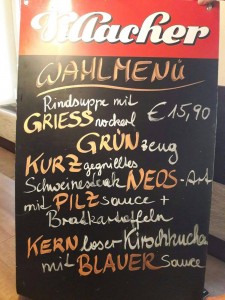 Villacher
WAHLMENÜ
Rindsuppe mit
GRIESSnockerl € 15,90
GRÜNzeug
KURZgegrilltes
Schweinesteak NEOS-Art
mit PILZsauce +
Bratkartoffeln
KERNloser Kirschkuchen
mit BLAUER Sauce